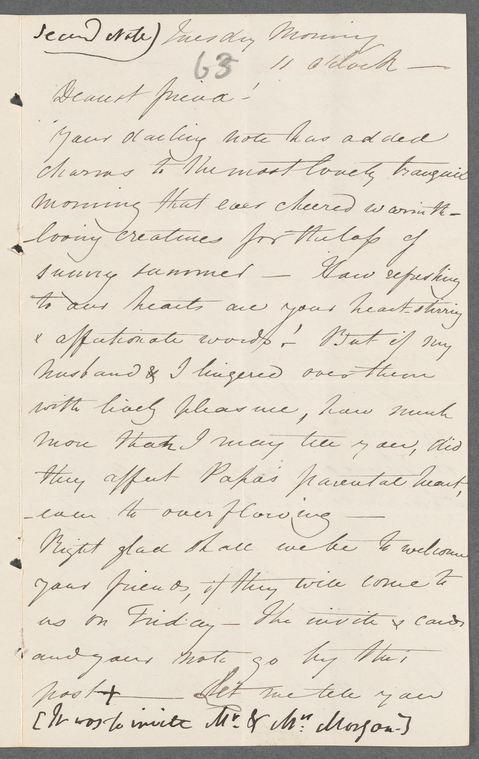 Second Note) Tuesday Morning
63 11 o'clock —
Dearest friend!
Your darling note has added
charms to the most lovely tranquil
morning that ever cheered warmth-
loving creatures for the loss of
sunny summer — How refreshing
to our hearts are your heart-stirring
& affectionate words! But if my
husband & I lingered over them
with lively pleasure, how much
more than I may tell you, did
they affect Papa's parental heart,
even to overflowing —
Right glad shall we be to welcome
your friends, if they will come to
us on Friday — The invite & cards
and your note go by this
post + — Let me tell you
[It was to invite Mr. & Mrs. Morgan.]